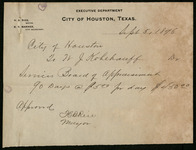 EXECUTIVE DEPARTMENT
CITY OF HOUSTON, TEXAS.
Sept 5, 1896
City of Houston
To W J Kohlhauff Dr
Services Board of Appraisement
Days @ $5.00 per day $
Approved
Mayor